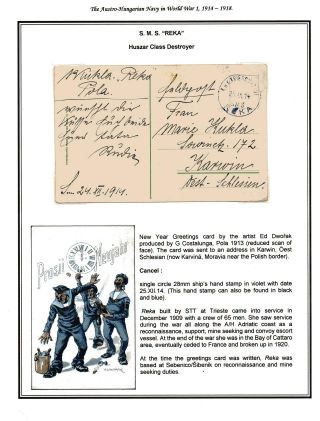 The Austro-Hungarian Navy in World War 1, 1914 – 1918.
S. M. S. "REKA"
Huszar Class Destroyer
Kukla, Reka
Pola.
wünscht dir
Feldpost
Frau
Marie Kukla
172
Karwin
Oest-Schlesien
24. XII. 1914.
Prosit Neujahr
New Year Greetings card by the artist Ed Dwořak
produced by G Costalunga, Pola 1913 (reduced scan of
face). The card was sent to an address in Karwin, Oest
Schlesien (now Karviná, Moravia near the Polish border).
Cancel :
single circle 28mm ship's hand stamp in violet with date
25.XII.14. (This hand stamp can also be found in black
and blue).
Reka built by STT at Trieste came into service in
December 1909 with a crew of 65 men. She saw service
during the war all along the A/H Adriatic coast as a
reconnaissance, support, mine seeking and convoy escort
vessel. At the end of the war she was in the Bay of Cattaro
area, eventually ceded to France and broken up in 1920.
At the time the greetings card was written, Reka was
based at Sebenico/Sibenik on reconnaissance and mine
seeking duties.